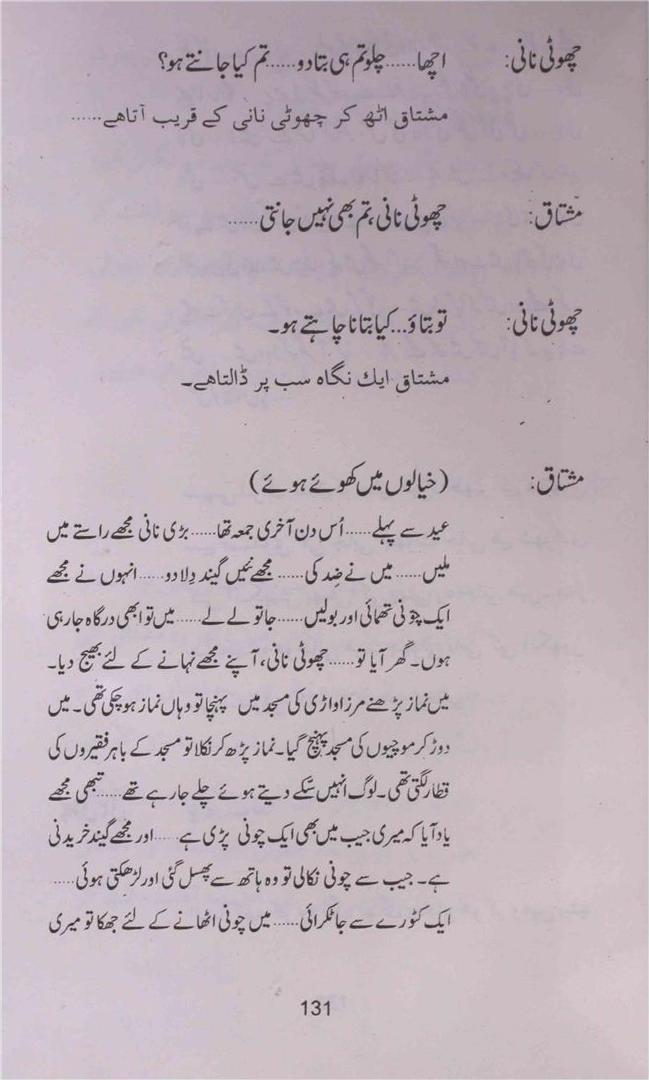 چھوٹی نانی: اچھا......چلو تم ہی بتا دو......تم کیا جانتے ہو؟
مشتاق اٹھ کر چھوٹی نانی کے قریب آتاھے......
مشتاق: چھوٹی نانی، تم بھی نہیں جانتی......
چھوٹی نانی: تو بتاؤ...کیا بتانا چاہتے ہو۔
مشتاق ایک نگاہ سب پر ڈالتاھے۔
مشتاق: (خیالوں میں کھوئے ہوئے)
عید سے پہلے......اُس دن آخری جمعہ تھا......بڑی نانی مجھے راستے میں
ملیں......میں نے ضد کی......مجھے نئیں گیند دِلا دو......انہوں نے مجھے
ایک چونی تھمائی اور بولیں......جا تو لے لے......میں تو ابھی درگاہ جا رہی
ہوں۔ گھر آیا تو......چھوٹی نانی، آپنے مجھے نہانے کے لئے بھیج دیا۔
میں نماز پڑھنے مرزا واڑی کی مسجد میں پہنچا تو وہاں نماز ہو چکی تھی۔ میں
دوڑ کر موچیوں کی مسجد پہنچ گیا۔ نماز پڑھ کر نکلا تو مسجد کے باہر فقیروں کی
قطار لگتی تھی۔ لوگ انہیں سّکے دیتے ہوئے چلے جا رہے تھے......تبھی مجھے
یاد آیا کہ میری جیب میں بھی ایک چونی پڑی ہے......اور مجھے گیند خریدنی
ہے۔ جیب سے چونی نکالی تو وہ ہاتھ سے پھسل گئی اور لڑھکتی ہوئی......
ایک کٹورے سے جا ٹکرائی......میں چونی اٹھانے کے لئے جھکا تو میری
131